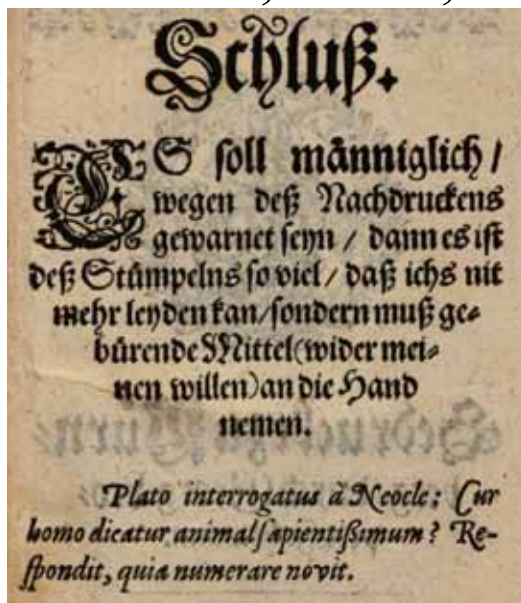 Schluß.
ES soll männiglich /
wegen deß Nachdruckens
gewarnet seyn / dann es ist
deß Stümpelns so viel / daß ichs nit
mehr leyden kan / sondern muß ge⸗
bürende Mittel (wider mei⸗
nen willen) an die Hand
nemen.
Plato interrogatus à Neocle: Cur
homo dicatur animal sapientißimum? Re-
spondit, quia numerare novit.